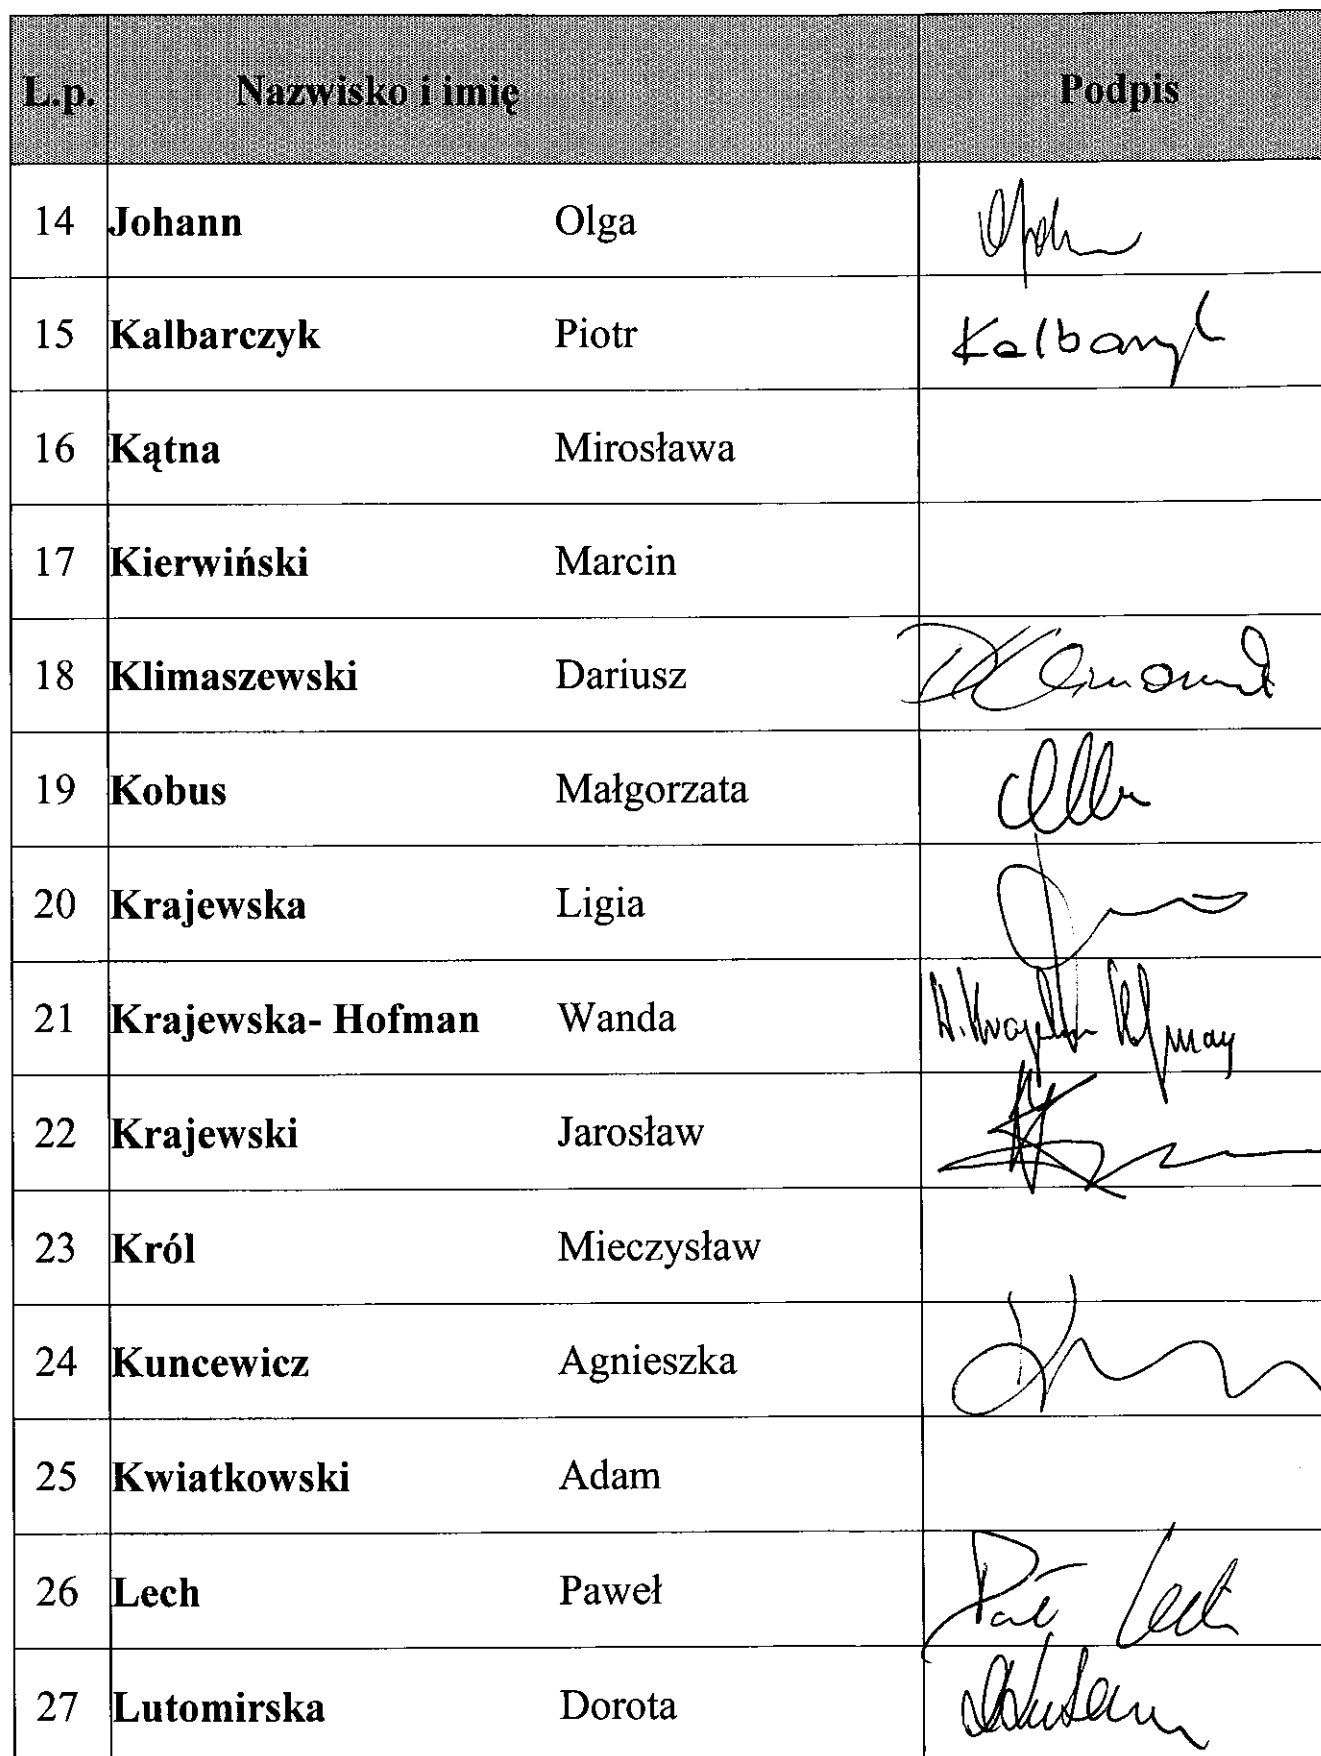 L.p. Nazwisko i imię Podpis
14 Johann Olga
15 Kalbarczyk Piotr Kalbarczyk
16 Kątna Mirosława
17 Kierwiński Marcin
18 Klimaszewski Dariusz
19 Kobus Małgorzata
20 Krajewska Ligia
21 Krajewska- Hofman Wanda
22 Krajewski Jarosław
23 Król Mieczysław
24 Kuncewicz Agnieszka
25 Kwiatkowski Adam
26 Lech Paweł Lech
27 Lutomirska Dorota